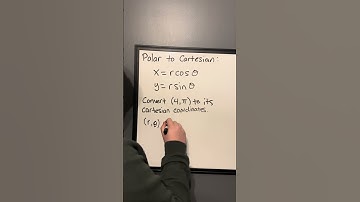 Polar to Cartesian:
x = r cos θ
y = r sin θ
Convert (4, π) to its
cartesian coordinates.
(r, θ)